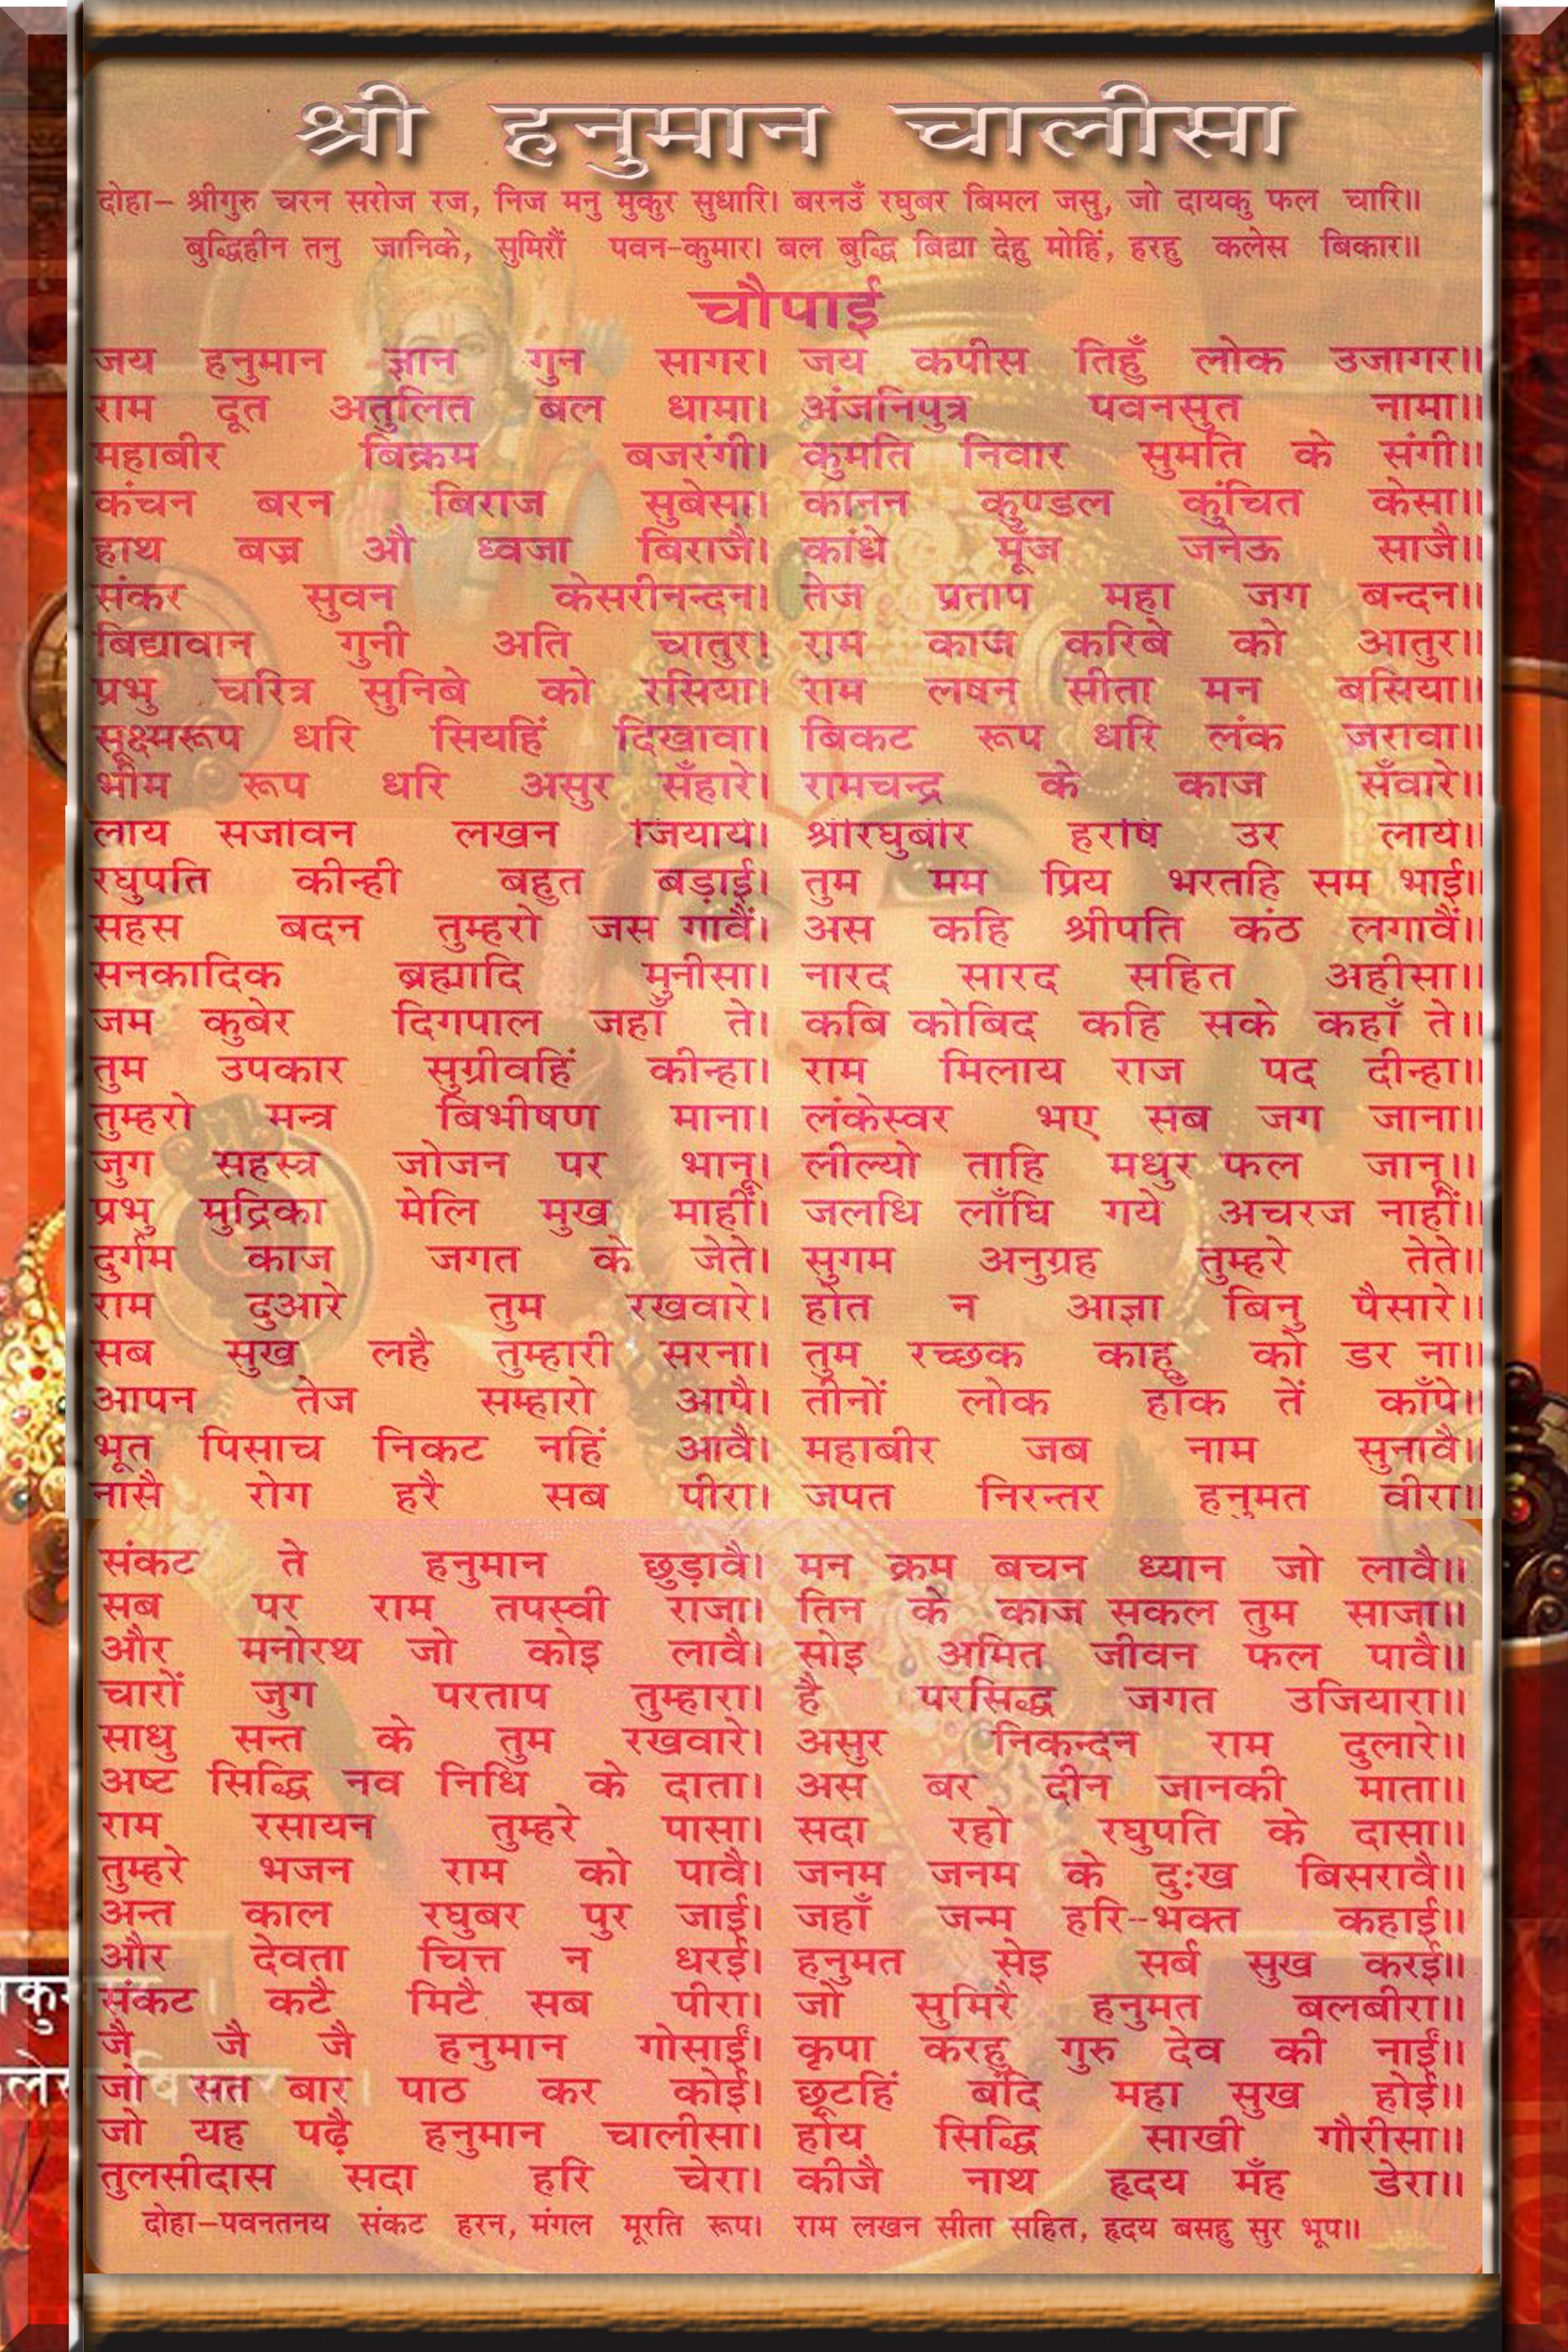 श्री हनुमान चालीसा
दोहा– श्रीगुरु चरन सरोज रज, निज मनु मुकुर सुधारि। बरनउँ रघुबर बिमल जसु, जो दायकु फल चारि॥
बुद्धिहीन तनु जानिके, सुमिरौं पवन-कुमार। बल बुद्धि बिद्या देहु मोहिं, हरहु कलेस बिकार॥
चौपाई
जय हनुमान ज्ञान गुन सागर। जय कपीस तिहुँ लोक उजागर॥
राम दूत अतुलित बल धामा। अंजनिपुत्र पवनसुत नामा॥
महाबीर बिक्रम बजरंगी। कुमति निवार सुमति के संगी॥
कंचन बरन बिराज सुबेसा। कानन कुण्डल कुंचित केसा॥
हाथ बज्र औ ध्वजा बिराजै। कांधे मूँज जनेऊ साजै॥
संकर सुवन केसरीनन्दन। तेज प्रताप महा जग बन्दन॥
बिद्यावान गुनी अति चातुर। राम काज करिबे को आतुर॥
प्रभु चरित्र सुनिबे को रसिया। राम लषन सीता मन बसिया॥
सूक्ष्मरूप धरि सियहिं दिखावा। बिकट रूप धरि लंक जरावा॥
भीम रूप धरि असुर सँहारे। रामचन्द्र के काज सँवारे॥
लाय सजीवन लखन जियाये। श्रीरघुबीर हरषि उर लाये॥
रघुपति कीन्ही बहुत बड़ाई। तुम मम प्रिय भरतहि सम भाई॥
सहस बदन तुम्हरो जस गावैं। अस कहि श्रीपति कंठ लगावैं॥
सनकादिक ब्रह्मादि मुनीसा। नारद सारद सहित अहीसा॥
जम कुबेर दिगपाल जहाँ ते। कबि कोबिद कहि सके कहाँ ते॥
तुम उपकार सुग्रीवहिं कीन्हा। राम मिलाय राज पद दीन्हा॥
तुम्हरो मन्त्र बिभीषण माना। लंकेस्वर भए सब जग जाना॥
जुग सहस्त्र जोजन पर भानू। लील्यो ताहि मधुर फल जानू॥
प्रभु मुद्रिका मेलि मुख माहीं। जलधि लाँघि गये अचरज नाहीं॥
दुर्गम काज जगत के जेते। सुगम अनुग्रह तुम्हरे तेते॥
राम दुआरे तुम रखवारे। होत न आज्ञा बिनु पैसारे॥
सब सुख लहै तुम्हारी सरना। तुम रच्छक काहू को डर ना॥
आपन तेज सम्हारो आपै। तीनों लोक हाँक तें काँपे॥
भूत पिसाच निकट नहिं आवै। महाबीर जब नाम सुनावै॥
नासै रोग हरै सब पीरा। जपत निरन्तर हनुमत वीरा॥
संकट ते हनुमान छुड़ावै। मन क्रम बचन ध्यान जो लावै॥
सब पर राम तपस्वी राजा। तिन के काज सकल तुम साजा॥
और मनोरथ जो कोइ लावै। सोइ अमित जीवन फल पावै॥
चारों जुग परताप तुम्हारा। है परसिद्ध जगत उजियारा॥
साधु सन्त के तुम रखवारे। असुर निकन्दन राम दुलारे॥
अष्ट सिद्धि नव निधि के दाता। अस बर दीन जानकी माता॥
राम रसायन तुम्हरे पासा। सदा रहो रघुपति के दासा॥
तुम्हरे भजन राम को पावै। जनम जनम के दुःख बिसरावै॥
अन्त काल रघुबर पुर जाई। जहाँ जन्म हरि-भक्त कहाई॥
और देवता चित्त न धरई। हनुमत सेइ सर्ब सुख करई॥
संकट कटै मिटै सब पीरा। जो सुमिरै हनुमत बलबीरा॥
जै जै जै हनुमान गोसाईं। कृपा करहु गुरु देव की नाईं॥
जो सत बार पाठ कर कोई। छूटहिं बंदि महा सुख होई॥
जो यह पढ़ै हनुमान चालीसा। होय सिद्धि साखी गौरीसा॥
तुलसीदास सदा हरि चेरा। कीजै नाथ हृदय मँह डेरा॥
दोहा–पवनतनय संकट हरन, मंगल मूरति रूप। राम लखन सीता सहित, हृदय बसहु सुर भूप॥